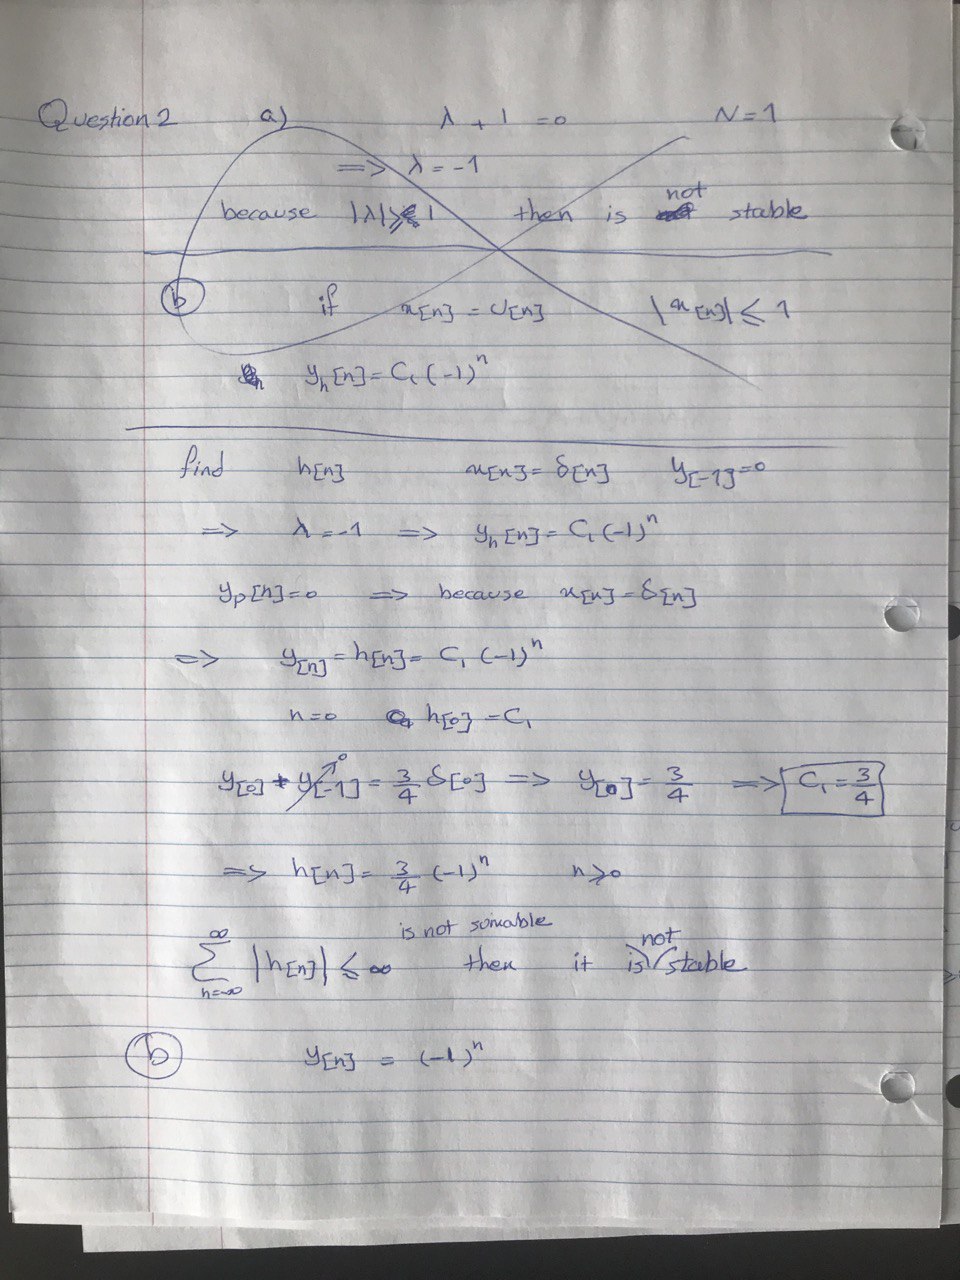 Question 2 a) λ + 1 = 0 N = 1
⟹ λ = -1
because |λ| ≥ 1 then is not stable
b if x[n] = U[n] |x[n]| ≤ 1
y_h[n] = C₁ (-1)^n
find h[n] x[n] = δ[n] y[-1] = 0
⟹ λ = -1 ⟹ y_h[n] = C₁ (-1)^n
y_p[n] = 0 ⟹ because x[n] = δ[n]
⟹ y[n] = h[n] = C₁ (-1)^n
n = 0 h[0] = C₁
y[0] + y[-1] = 3/4 δ[0] ⟹ y[0] = 3/4 ⟹ C₁ = 3/4
0
⟹ h[n] = 3/4 (-1)^n n ≥ 0
is not sumable
∑_{n=-∞}^{∞} |h[n]| ≤ ∞ then it is not stable
b y[n] = (-1)^n